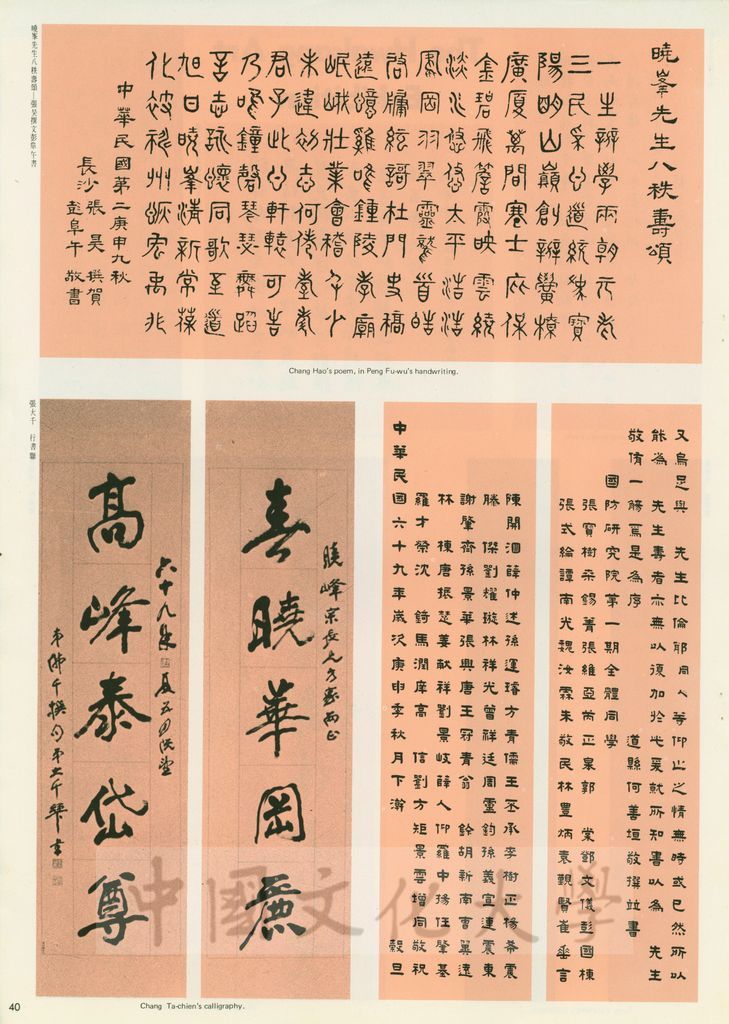 曉峯先生八秩壽頌——張昊撰文彭阜午書
曉峯先生八秩壽頌
一生辦學兩朝元老
三民采公道統
陽明山巔創辦黌橑
廣厦萬間寒士庇保
金碧飛簷霞映雲繞
淡水悠悠太平浩浩
鳳岡羽翠靈鷲首皓
啟牖絃謌杜門史稿
遠 鍾陵孝廟
岷峨壯業會稽年少
未違初志何倦
君子此公軒轅可告
乃鳴鐘磬琴瑟舞蹈
言志詠懷同歌至道
旭日曉峯清新常葆
化被神州 宏禹兆
中華民國第二庚申九秋
長沙 張昊 撰賀
彭阜午 敬書
Chang Hao's poem, in Peng Fu-wu's handwriting.
又烏足與 先生比倫耶同人等仰止之情無時或已然所以
能為 先生壽者亦無以復加於此爰就所知書以為 先生
敬侑一觴焉是為序 道縣何善垣敬撰並書
國防研究院第一期全體同學
張寶樹梁錫菁張維亞芮正皋郭 棠鄧文儀彭國棟
張式綸譚南光魏汝霖朱敬民林豐炳袁覲賢崔垂言
陳開泗薛仲述孫運璿方青儒王丕承李樹正楊希震
滕 傑劉耀璇林祥光曾祥廷周靈鈞孫義宣連震東
謝肇齊孫景華張興唐王冠青翁 鈐胡新南曹翼遠
林 棟唐振楚姜獻祥劉景岐薛人仰羅中揚任肇基
羅才榮沈 錡馬潤庠高 信劉方矩景雲增同敬祝
中華民國六十九年歲次庚申季秋月下澣 穀旦
曉峰宗長兄方家兩正
喜曉華岡麗
高峰泰岱尊
六十九年夏五
弟佛千撰句弟大千張爰書
張大千 行書聯
中國文化大學
40
Chang Ta-chien's calligraphy.